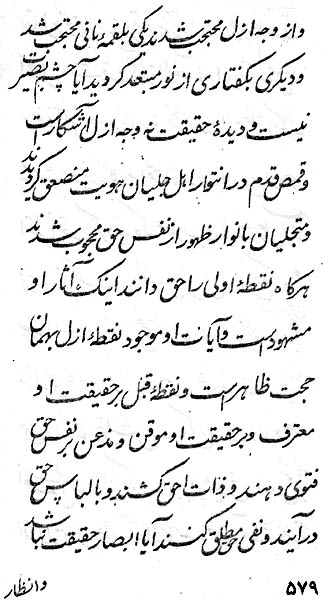 و از وجه ازل محتجب شدند یکی بلقمهٔ نانی محتجب شد
و دیگری بگفتاری از نور مبتعد گردید آیا چشم بصیر
نیست و دیدهٔ حقیقت نه وجه ازل آشکار است
و قمص قدم در انتوار اهل جلیان هویت منصعق گردیدند
و متجلیان بانوار ظهور از نفس حق محجوب شدند
هرگاه نقطهٔ اولی را حق دانند اینک آثار او
مشهود است و آیات او موجود نقطهٔ ازل بهمان
حجت ظاهر است و نقطهٔ قبل بر حقیقت او
معترف و بر حقیقت او موقن و مذعن بر نفس حق
فتوی دهند و ذات حق کشند و با لباس حق
در آیند و نفی حق مطلق کنند آیا ابصار حقیقت نباشد
۵۷۹
و انظار